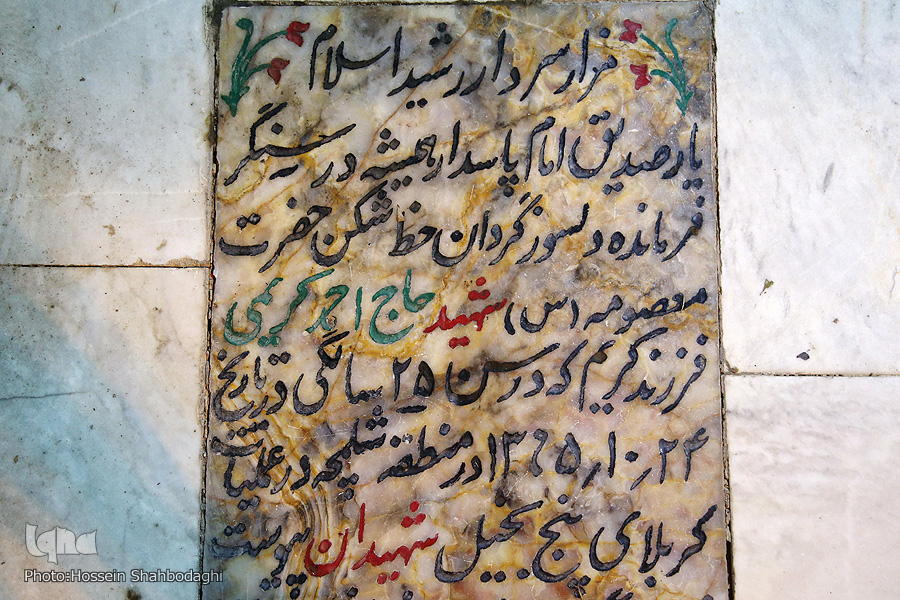 مزار سردار رشید اسلام
یار صدیق امام پاسدار همیشه در سنگر
فرمانده دلسوز گردان خط شکن حضرت
معصومه (س) شهید حاج احمد کریمی
فرزند کریم که در سن ۲۵ سالگی در تاریخ
۱۳۶۵٫۱۰٫۲۴ در منطقه شلمچه در عملیات
کربلای پنج بخیل شهیدان پیوست
iqna
Photo:Hossein Shahbodaghi